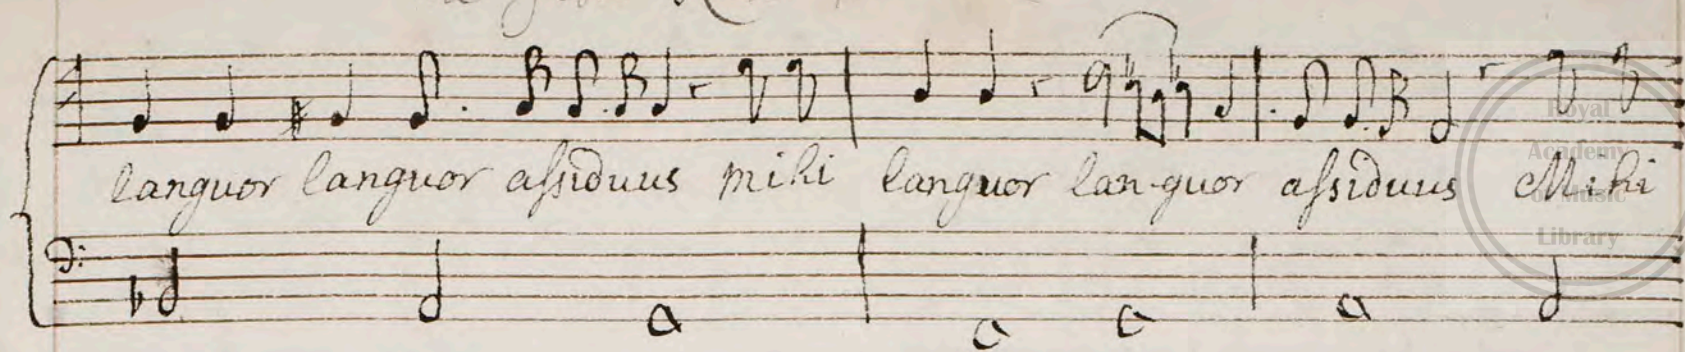 languor languor aſsiduus mihi languor lan-guor aſsiduus Mihi
Royal
Academy
of Music
Library